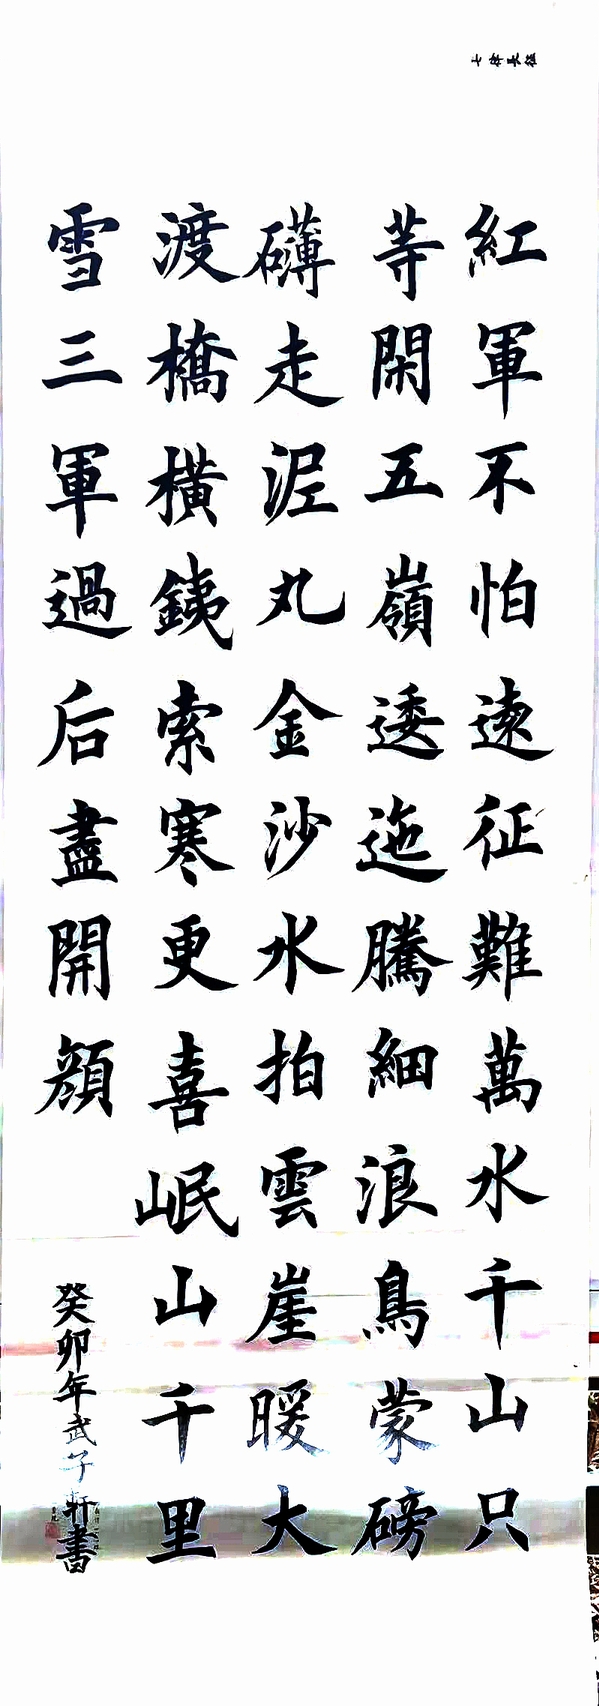 紅軍不怕遠征難萬水千山只
等閑五嶺逶迤騰細浪鳥蒙磅
礴走泥丸金沙水拍雲崖暖大
渡橋橫銕索寒更喜岷山千里
雪三軍過后盡開顔
癸卯年武子軒書